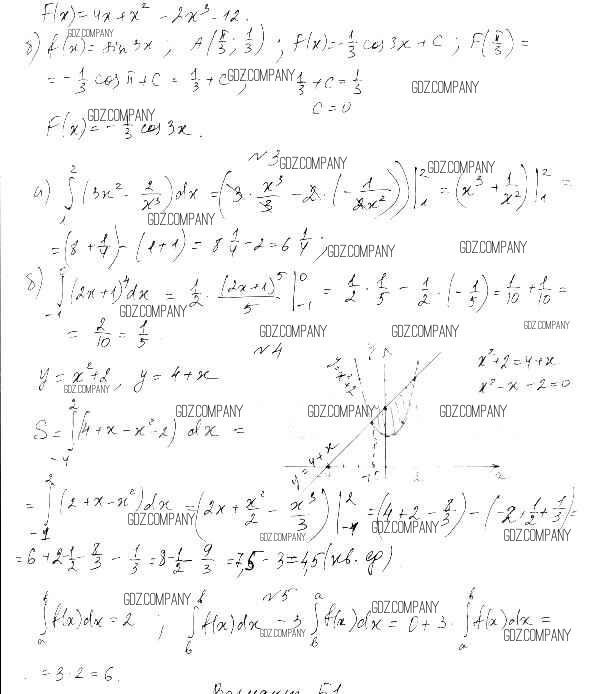 F(x) = 4x + x² - 2x³ - 12.
б) f(x) = sin 3x ; A(π/3 ; 1/3) ; F(x) = -1/3 cos 3x + C ; F(π/3) =
= -1/3 cos π + C = 1/3 + C ; 1/3 + C = 1/3
C = 0
F(x) = -1/3 cos 3x.
№3
а) ∫₁² (3x² - 2/x³) dx = (3 · x³/3 - 2 · (-1/2x²)) |₁² = (x³ + 1/x²) |₁² =
= (8 + 1/4) - (1+1) = 8 1/4 - 2 = 6 1/4 ;
б) ∫₋₁⁰ (2x+1)⁴ dx = 1/2 · (2x+1)⁵/5 |₋₁⁰ = 1/2 · 1/5 - 1/2 · (-1/5) = 1/10 + 1/10 =
= 2/10 = 1/5.
№4
y = x² + 2, y = 4 + x
x² + 2 = 4 + x
x² - x - 2 = 0
y = 4 + x
S = ∫₋₁² (4 + x - x² - 2) dx =
= ∫₋₁² (2 + x - x²) dx = (2x + x²/2 - x³/3) |₋₁² = (4 + 2 - 8/3) - (-2 + 1/2 + 1/3) =
= 6 + 2 - 1/2 - 8/3 - 1/3 = 8 - 1/2 - 9/3 = 7,5 - 3 = 4,5 (кв. ед)
№5
∫ₐᵇ f(x)dx = 2 ; ∫ᵇᵇ f(x)dx - 3 ∫ᵇᵃ f(x)dx = 0 + 3 · ∫ₐᵇ f(x)dx =
= 3 · 2 = 6.
GDZ.COMPANY